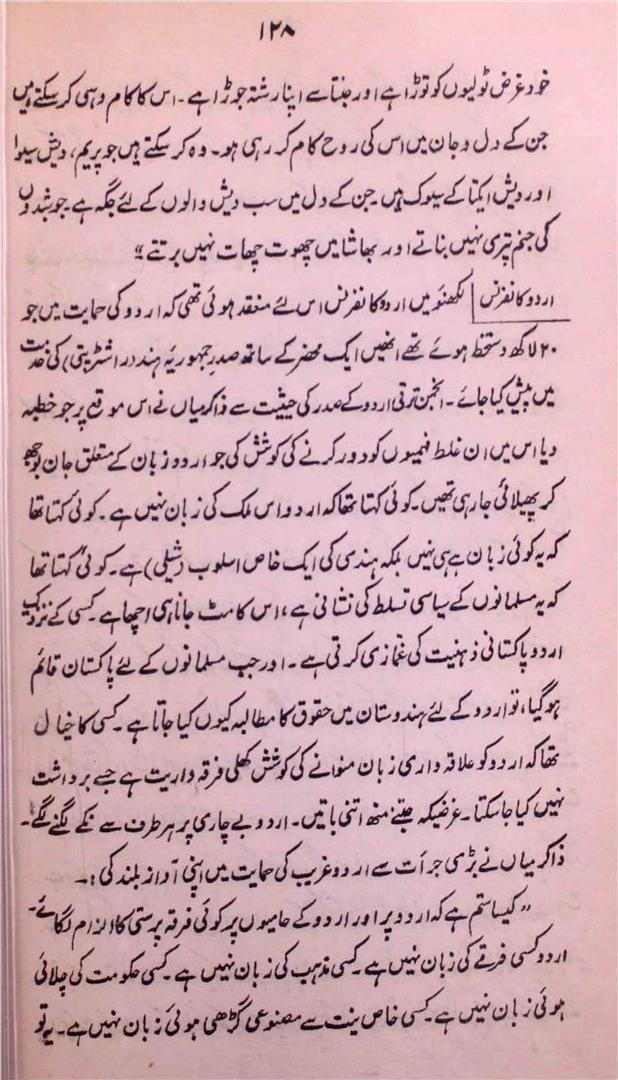 ۱۲۸
خود غرض ٹولیوں کو توڑا ہے اور جنتا سے اپنا رشتہ جوڑا ہے۔ اس کا کام وہی کر سکتے ہیں
جن کے دل و جان میں اس کی روح کام کر رہی ہو۔ وہ کر سکتے ہیں جو پریم، دیش سیوا
اور دیش ایکتا کے سیوک ہیں۔ جن کے دل میں سب دیش والوں کے لئے جگہ ہے جو شبدوں
کی جنم پتری نہیں بناتے اور بھاشا میں چھوت چھات نہیں برتتے“
اردو کانفرنس لکھنؤ میں اردو کانفرنس اس لئے منعقد ہوئی تھی کہ اردو کی حمایت میں جو
۲۰ لاکھ دستخط ہوئے تھے انھیں ایک محضر کے ساتھ صدر جمہوریہ ہند (راشٹرپتی) کی خدمت
میں پیش کیا جائے۔ انجمن ترقی اردو کے صدر کی حیثیت سے ذاکر میاں نے اس موقع پر جو خطبہ
دیا اس میں ان غلط فہمیوں کو دور کرنے کی کوشش کی جو اردو زبان کے متعلق جان بوجھ
کر پھیلائی جا رہی تھیں۔ کوئی کہتا تھا کہ اردو اس ملک کی زبان نہیں ہے۔ کوئی کہتا تھا
کہ یہ کوئی زبان ہے ہی نہیں بلکہ ہندی کی ایک خاص اسلوب (شیلی) ہے۔ کوئی کہتا تھا
کہ یہ مسلمانوں کے سیاسی تسلط کی نشانی ہے، اس کا مٹ جانا ہی اچھا ہے۔ کسی کے نزدیک
اردو پاکستانی ذہنیت کی غمازی کرتی ہے۔ اور جب مسلمانوں کے لئے پاکستان قائم
ہو گیا، تو اردو کے لئے ہندوستان میں حقوق کا مطالبہ کیوں کیا جاتا ہے۔ کسی کا خیال
تھا کہ اردو کو علاقہ واری زبان منوانے کی کوشش کھلی فرقہ واریت ہے جسے برداشت
نہیں کیا جا سکتا۔ غرضیکہ جتنے منھ اتنی باتیں۔ اردو بے چاری پر ہر طرف سے نکے لگنے لگے۔
ذاکر میاں نے بڑی جرأت سے اردو غریب کی حمایت میں اپنی آواز بلند کی:۔
”کیسا ستم ہے کہ اردو پر اور اردو کے حامیوں پر کوئی فرقہ پرستی کا الزام لگائے۔
اردو کسی فرقے کی زبان نہیں ہے۔ کسی مذہب کی زبان نہیں ہے۔ کسی حکومت کی چلائی
ہوئی زبان نہیں ہے۔ کسی خاص نیت سے مصنوعی گڑھی ہوئی زبان نہیں ہے۔ یہ تو